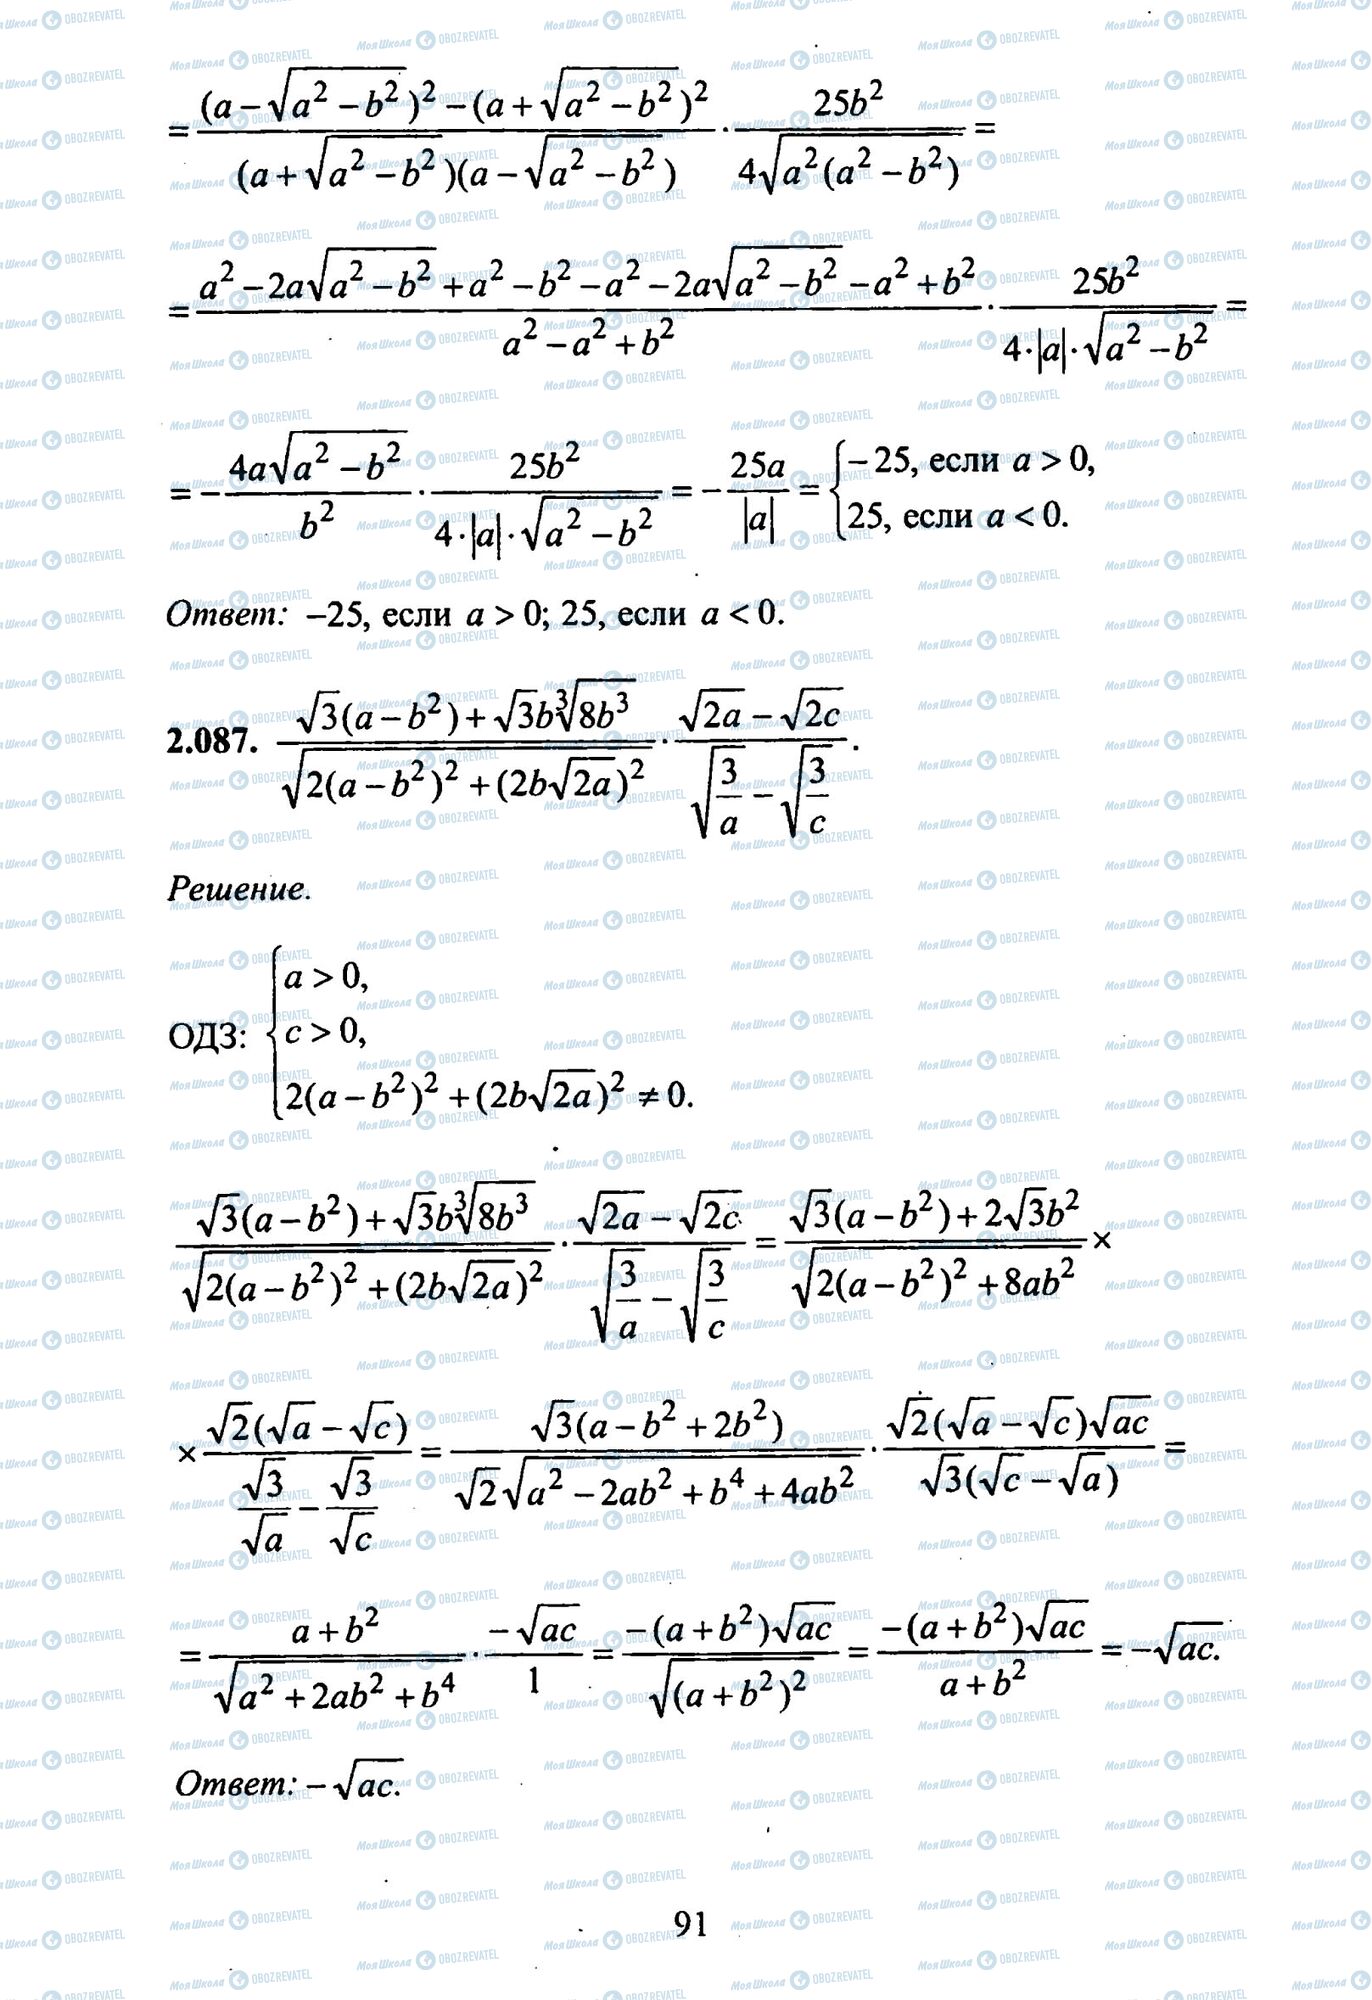 = \frac{(a-\sqrt{a^2-b^2})^2-(a+\sqrt{a^2-b^2})^2}{(a+\sqrt{a^2-b^2})(a-\sqrt{a^2-b^2})} \cdot \frac{25b^2}{4\sqrt{a^2(a^2-b^2)}} =
= \frac{a^2-2a\sqrt{a^2-b^2}+a^2-b^2-a^2-2a\sqrt{a^2-b^2}-a^2+b^2}{a^2-a^2+b^2} \cdot \frac{25b^2}{4\cdot|a|\cdot\sqrt{a^2-b^2}} =
= -\frac{4a\sqrt{a^2-b^2}}{b^2} \cdot \frac{25b^2}{4\cdot|a|\cdot\sqrt{a^2-b^2}} = -\frac{25a}{|a|} = { -25, если a > 0,
25, если a < 0.
Ответ: –25, если a > 0; 25, если a < 0.
2.087. \frac{\sqrt{3}(a-b^2)+\sqrt{3}b\sqrt[3]{8b^3}}{\sqrt{2(a-b^2)^2+(2b\sqrt{2a})^2}} \cdot \frac{\sqrt{2a}-\sqrt{2c}}{\sqrt{\frac{3}{a}}-\sqrt{\frac{3}{c}}}.
Решение.
ОДЗ: { a > 0,
c > 0,
2(a-b^2)^2+(2b\sqrt{2a})^2 ≠ 0.
\frac{\sqrt{3}(a-b^2)+\sqrt{3}b\sqrt[3]{8b^3}}{\sqrt{2(a-b^2)^2+(2b\sqrt{2a})^2}} \cdot \frac{\sqrt{2a}-\sqrt{2c}}{\sqrt{\frac{3}{a}}-\sqrt{\frac{3}{c}}} = \frac{\sqrt{3}(a-b^2)+2\sqrt{3}b^2}{\sqrt{2(a-b^2)^2+8ab^2}} ×
× \frac{\sqrt{2}(\sqrt{a}-\sqrt{c})}{\frac{\sqrt{3}}{\sqrt{a}}-\frac{\sqrt{3}}{\sqrt{c}}} = \frac{\sqrt{3}(a-b^2+2b^2)}{\sqrt{2}\sqrt{a^2-2ab^2+b^4+4ab^2}} \cdot \frac{\sqrt{2}(\sqrt{a}-\sqrt{c})\sqrt{ac}}{\sqrt{3}(\sqrt{c}-\sqrt{a})} =
= \frac{a+b^2}{\sqrt{a^2+2ab^2+b^4}} \cdot \frac{-\sqrt{ac}}{1} = \frac{-(a+b^2)\sqrt{ac}}{\sqrt{(a+b^2)^2}} = \frac{-(a+b^2)\sqrt{ac}}{a+b^2} = -\sqrt{ac}.
Ответ: -\sqrt{ac}.
91
МояШкола OBOZREVATEL